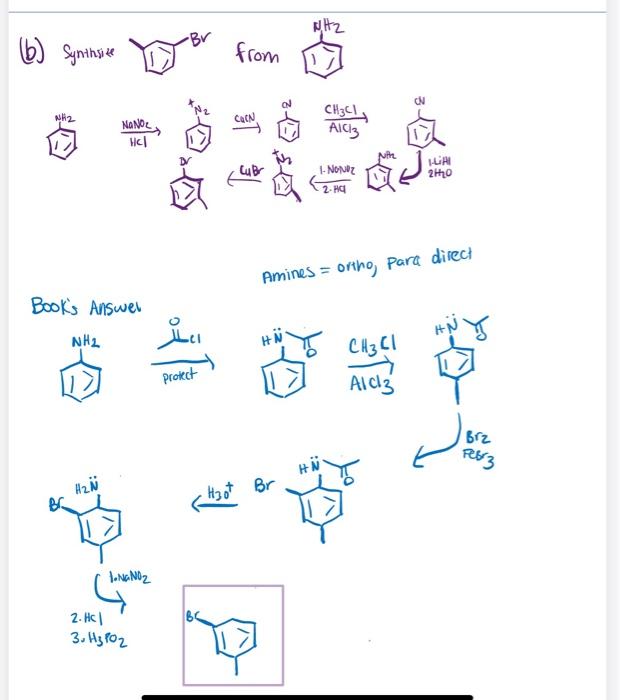 (b) Synthsize Br from NH2
NH2 NaNO2 HCl +N2 CuCN CN CH3Cl AlCl3 CN
Br CuBr +N2 1. NaNO2 2. HCl NH2 1. LiAl 2 H2O
Amines = ortho, para direct
Book's Answer
NH2 O Cl protect HN O CH3Cl AlCl3 HN O
Br2 FeBr3
Br H2N H3O+ Br HN O
1. NaNO2
2. HCl
3. H3PO2
Br